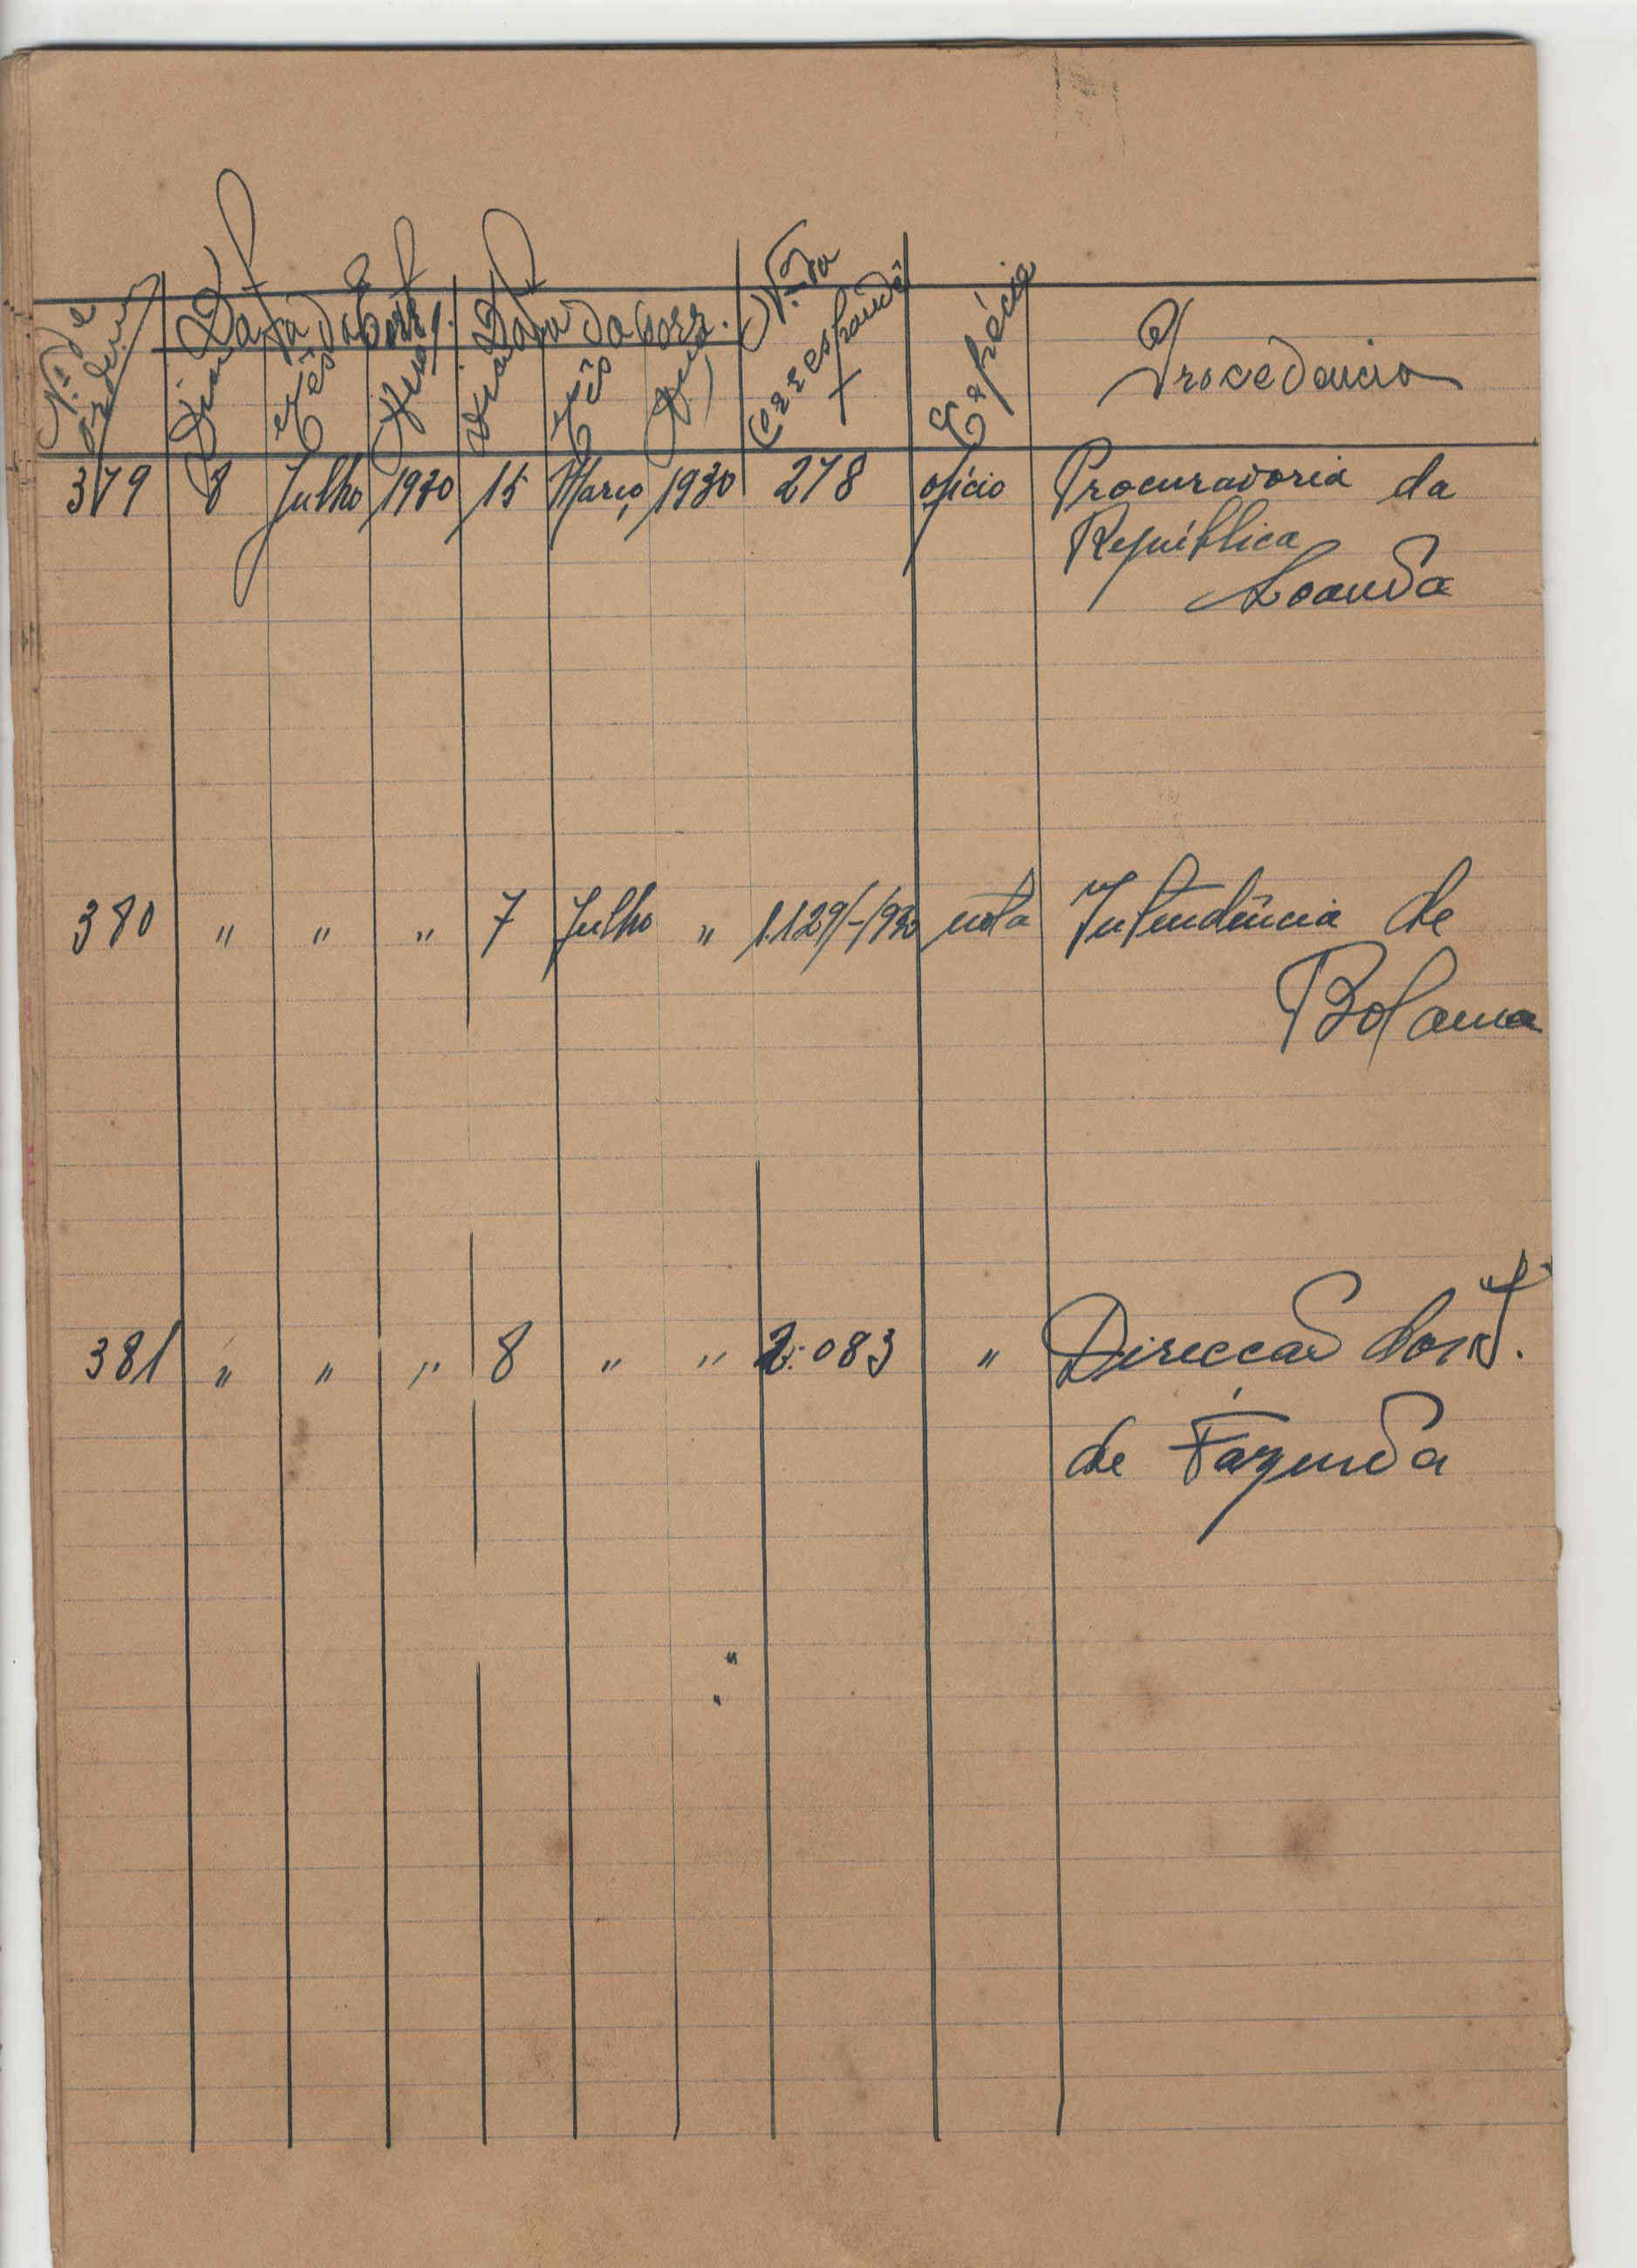 Nº de ordem Data da Entr. Data da Corr. Nº da Correspondê Espécie Procedencia
Dia Mês Ano Dia Mês Ano
379 8 Julho 1930 15 Março 1930 278 ofício Procuradoria da
República
Loanda
380 " " " 7 Julho " 1.129/-/930 nota Intendência de
Bolama
381 " " " 8 " " 2:083 " Direcção
de Fazenda